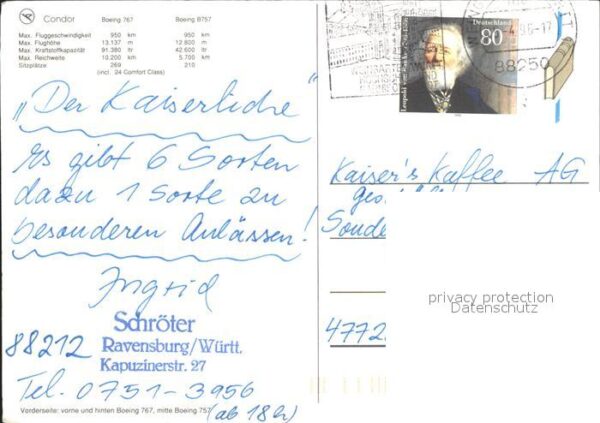 Condor Boeing 767 Boeing B757
Max. Fluggeschwindigkeit 950 km 950 km
Max. Flughöhe 13.137 m 12.800 m
Max. Kraftstoffkapazität 91.380 ltr 42.600 ltr
Max. Reichweite 10.200 km 5.700 km
Sitzplätze 269 210
(incl. 24 Comfort Class)
Deutschland
80
88250
„Der Kaiserliche"
Es gibt 6 Sorten
dazu 1 Sorte zu
besonderen Anlässen!
Ingrid
Schröter
88212 Ravensburg/Württ.
Kapuzinerstr. 27
Tel. 0751-3956
(ab 18 h)
Vorderseite: vorne und hinten Boeing 767, mitte Boeing 757
Kaiser's Kaffee AG
Sonde
4772
privacy protection
Datenschutz